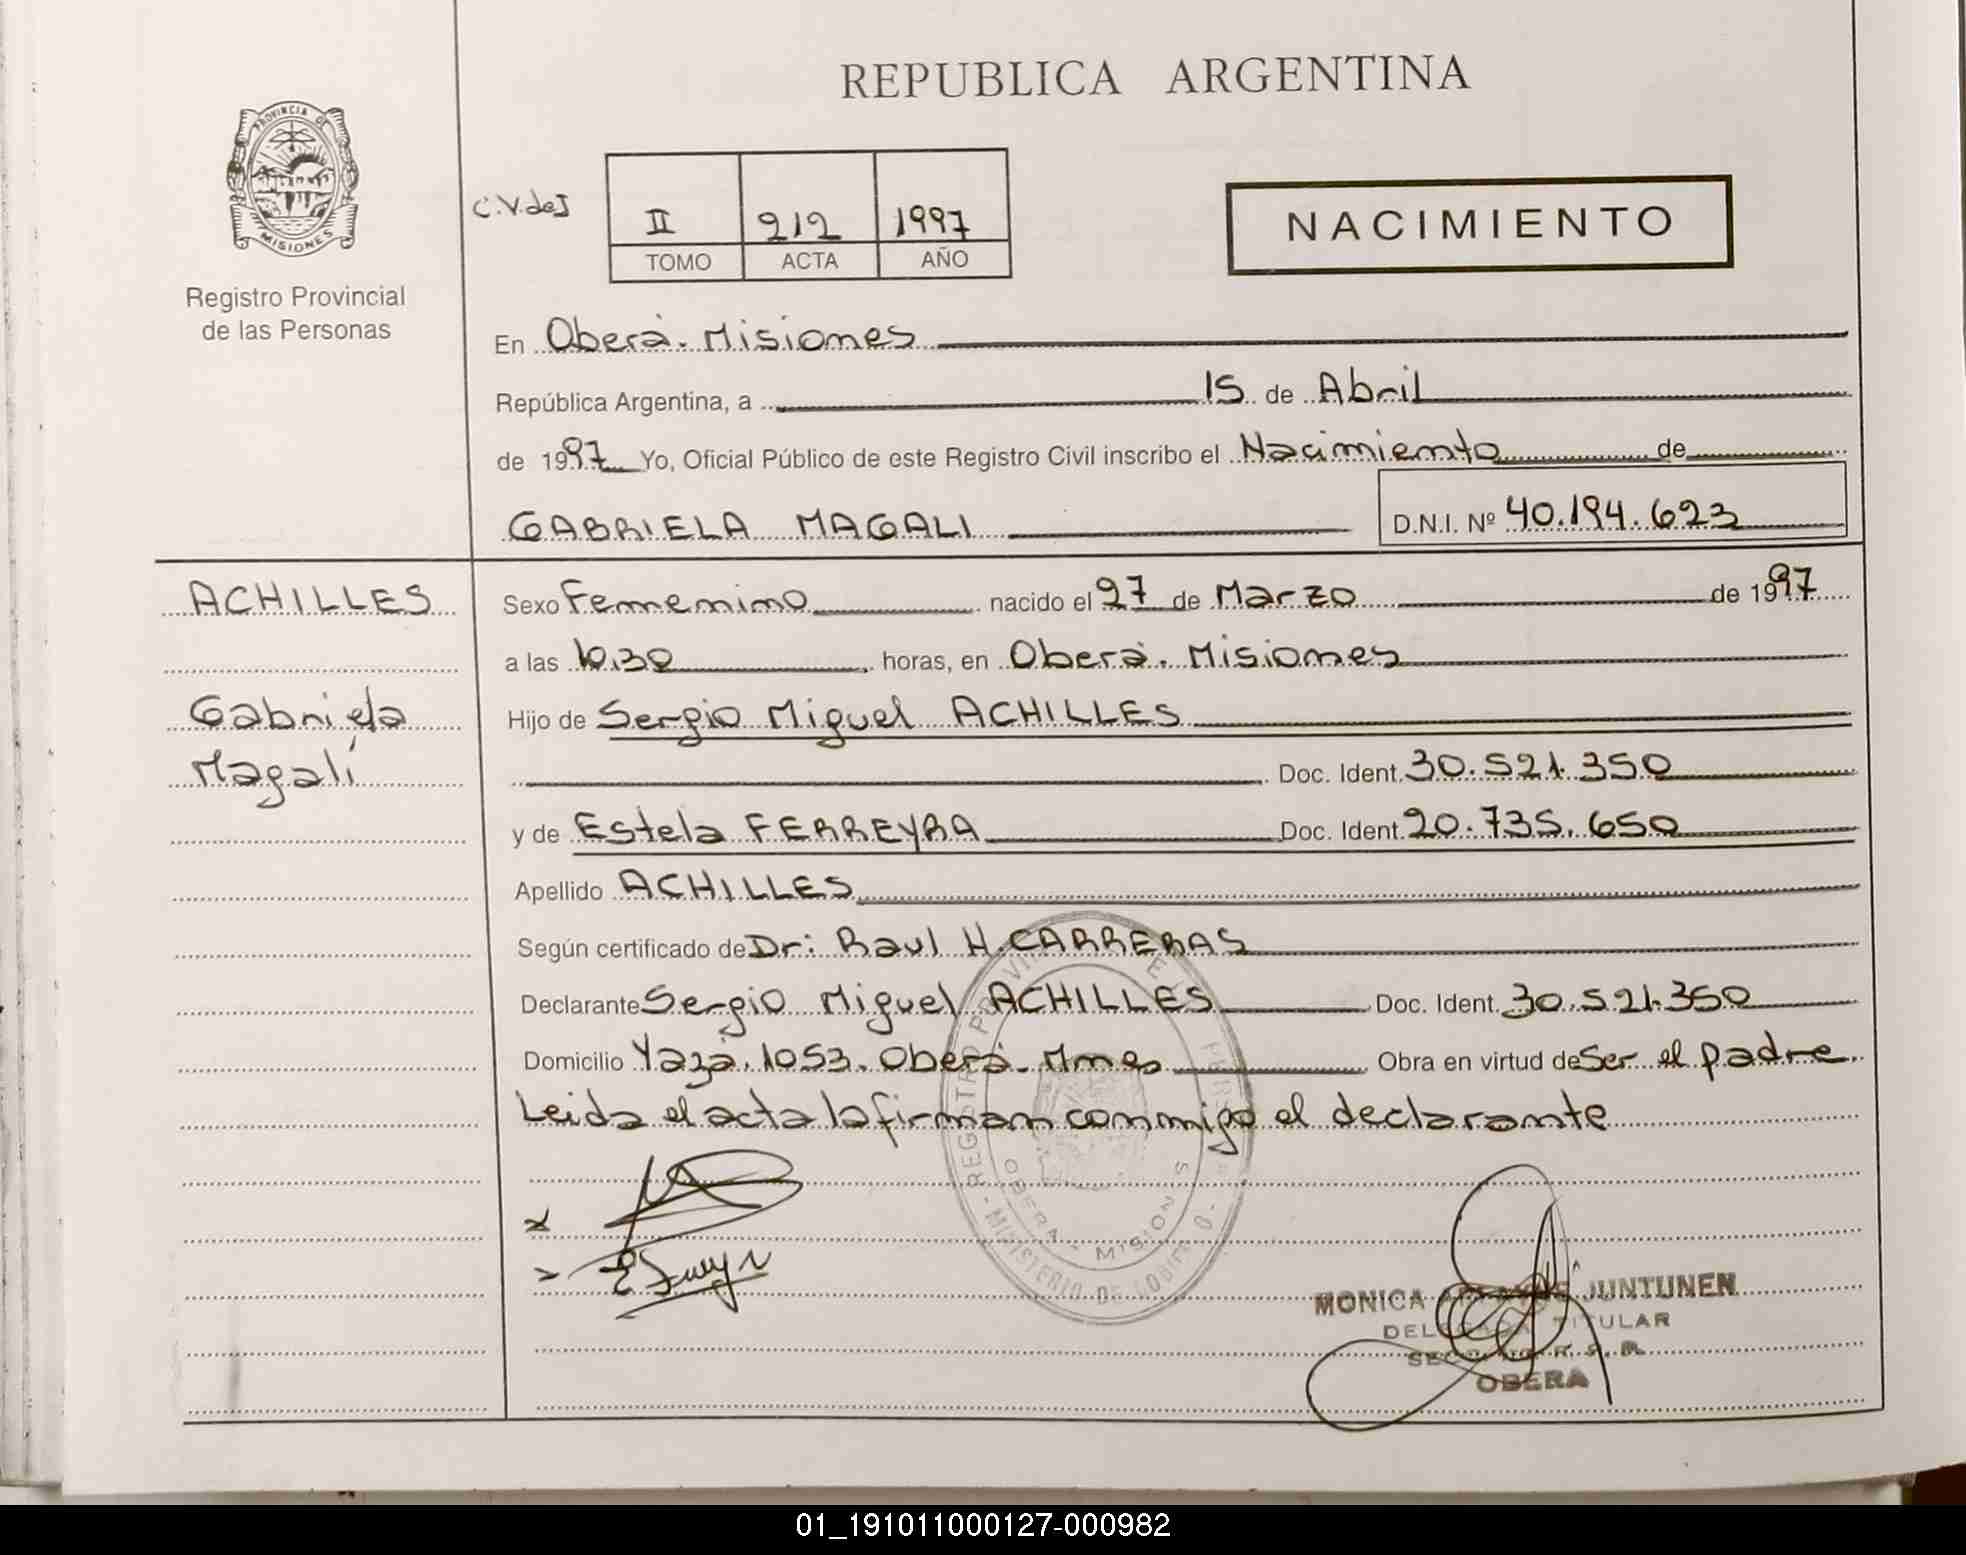 REPUBLICA ARGENTINA
PROVINCIA DE
MISIONES
Registro Provincial
de las Personas
C.V.deJ
II 212 1997
TOMO ACTA AÑO
NACIMIENTO
En Oberá. Misiones
República Argentina, a 15 de Abril
de 1997 Yo, Oficial Público de este Registro Civil inscribo el Nacimiento de
GABRIELA MAGALI D.N.I. Nº 40.194.623
ACHILLES
Gabriela
Magalí
Sexo Femenino nacido el 27 de Marzo de 1997
a las 10.30 horas, en Oberá. Misiones
Hijo de Sergio Miguel ACHILLES
Doc. Ident. 30.521.350
y de Estela FERREYRA Doc. Ident. 20.735.650
Apellido ACHILLES
Según certificado de Dr: Raul H. CARRERAS
Declarante Sergio Miguel ACHILLES Doc. Ident. 30.521.350
Domicilio Yazá. 1053. Oberá. Mnes Obra en virtud de Ser el padre
Leida el acta la firman conmigo el declarante
OBERA - MISIONES
MINISTERIO DE GOBIERNO
MONICA JUNTUNEN
DELEGADA TITULAR
OBERA
01_191011000127-000982